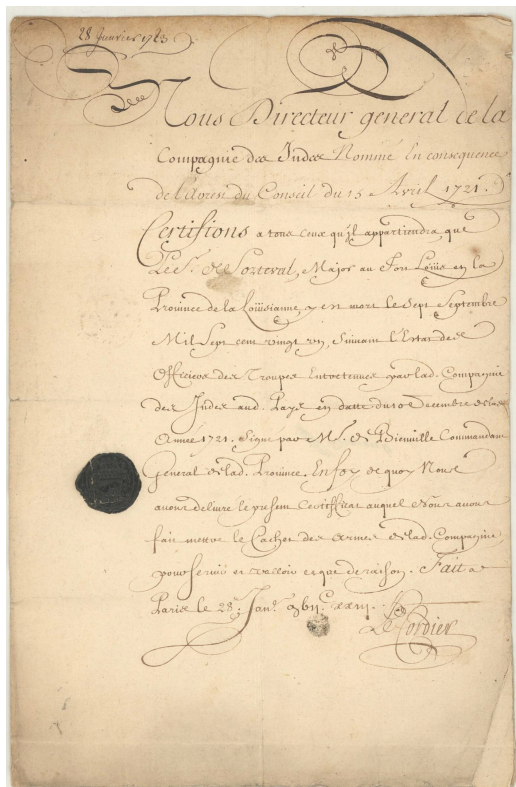 28 Janvier 1723
Nous Directeur general de la
Compagnie des Indes Nommé En consequence
de l'Arrest du Conseil du 15 Avril 1721.
Certifions a tous ceux qu'il appartiendra, que
Le Sr. de Sorteval, Major au Fort Loüis en la
Province de la Loüisianne, y en mort le Sept Septembre
Mil Sept cent vingt un, Suivant l'Estat des
Officiers des Troupes Entretenues par lad. Compagnie
des Indes aud. Pays en datte du 10 Decembre de lad.
Année 1721. Signé par M. de Bienville Commandant
General de lad. Province. En foy de quoy Nous
avons delivré le present Certifficat auquel Nous avons
fait mettre le Cachet des Armes de lad. Compagnie,
pour servir et valloir ce que de raison. Fait a
Paris le 28. Janr.
Le Cordier